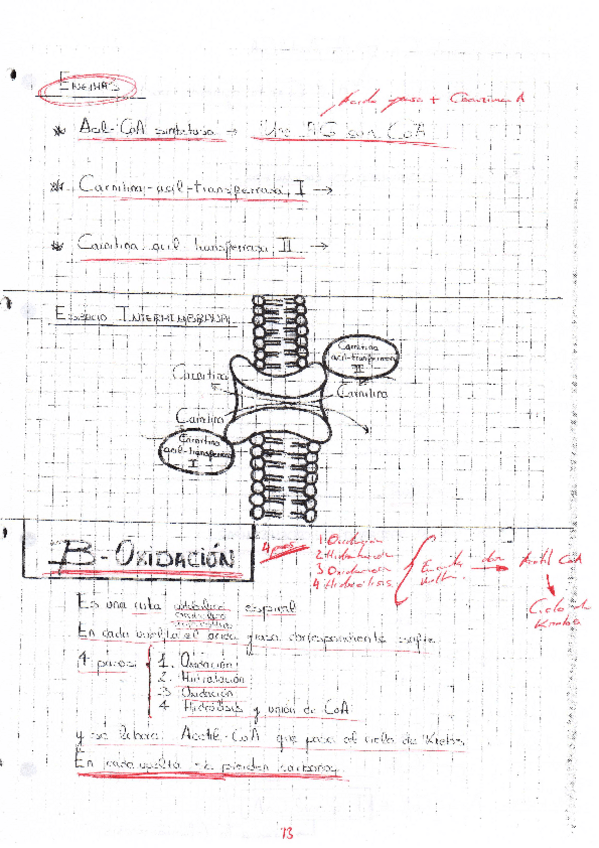 ENZIMAS
Ácido graso + Coenzima A
* Acil-CoA sintetasa → Une AG con CoA
* Carnitina-acil-transferasa I →
* Carnitina acil transferasa II →
ESPACIO INTERMEMBRANA
Carnitina
acil-transferasa
II
Carnitina
Carnitina
Carnitina
Carnitina
acil-transferasa
I
B-OXIDACIÓN
4 pasos
1 Oxidación
2 Hidratación
3 Oxidación
4 Hidrólisis
En cada vuelta
Acetil CoA
Ciclo de
Krebs
Es una ruta espiral
En cada vuelta el ácido graso correspondiente sufre
4 pasos
1. Oxidación
2. Hidratación
3 Oxidación
4 Hidrólisis y unión de CoA
y se libera Acetil-CoA que pasa al ciclo de Krebs
En cada vuelta se pierden carbonos
13